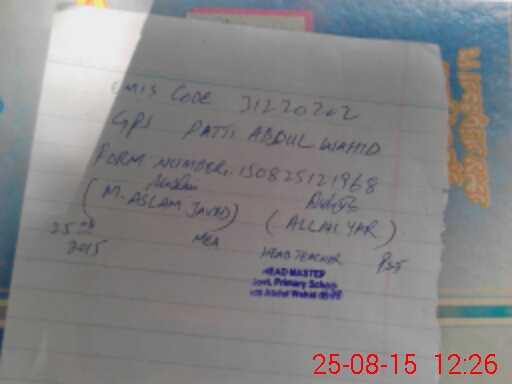 EMIS CODE 31220202
GPS PATTI ABDUL WAHID
FORM NUMBER. 150825121968
(M. ASLAM JAVED) (ALLAH YAR)
25 08 2015
MEA HEAD TEACHER PST
HEAD MASTER
Govt. Primary School
Abdul Wahid
25-08-15 12:26